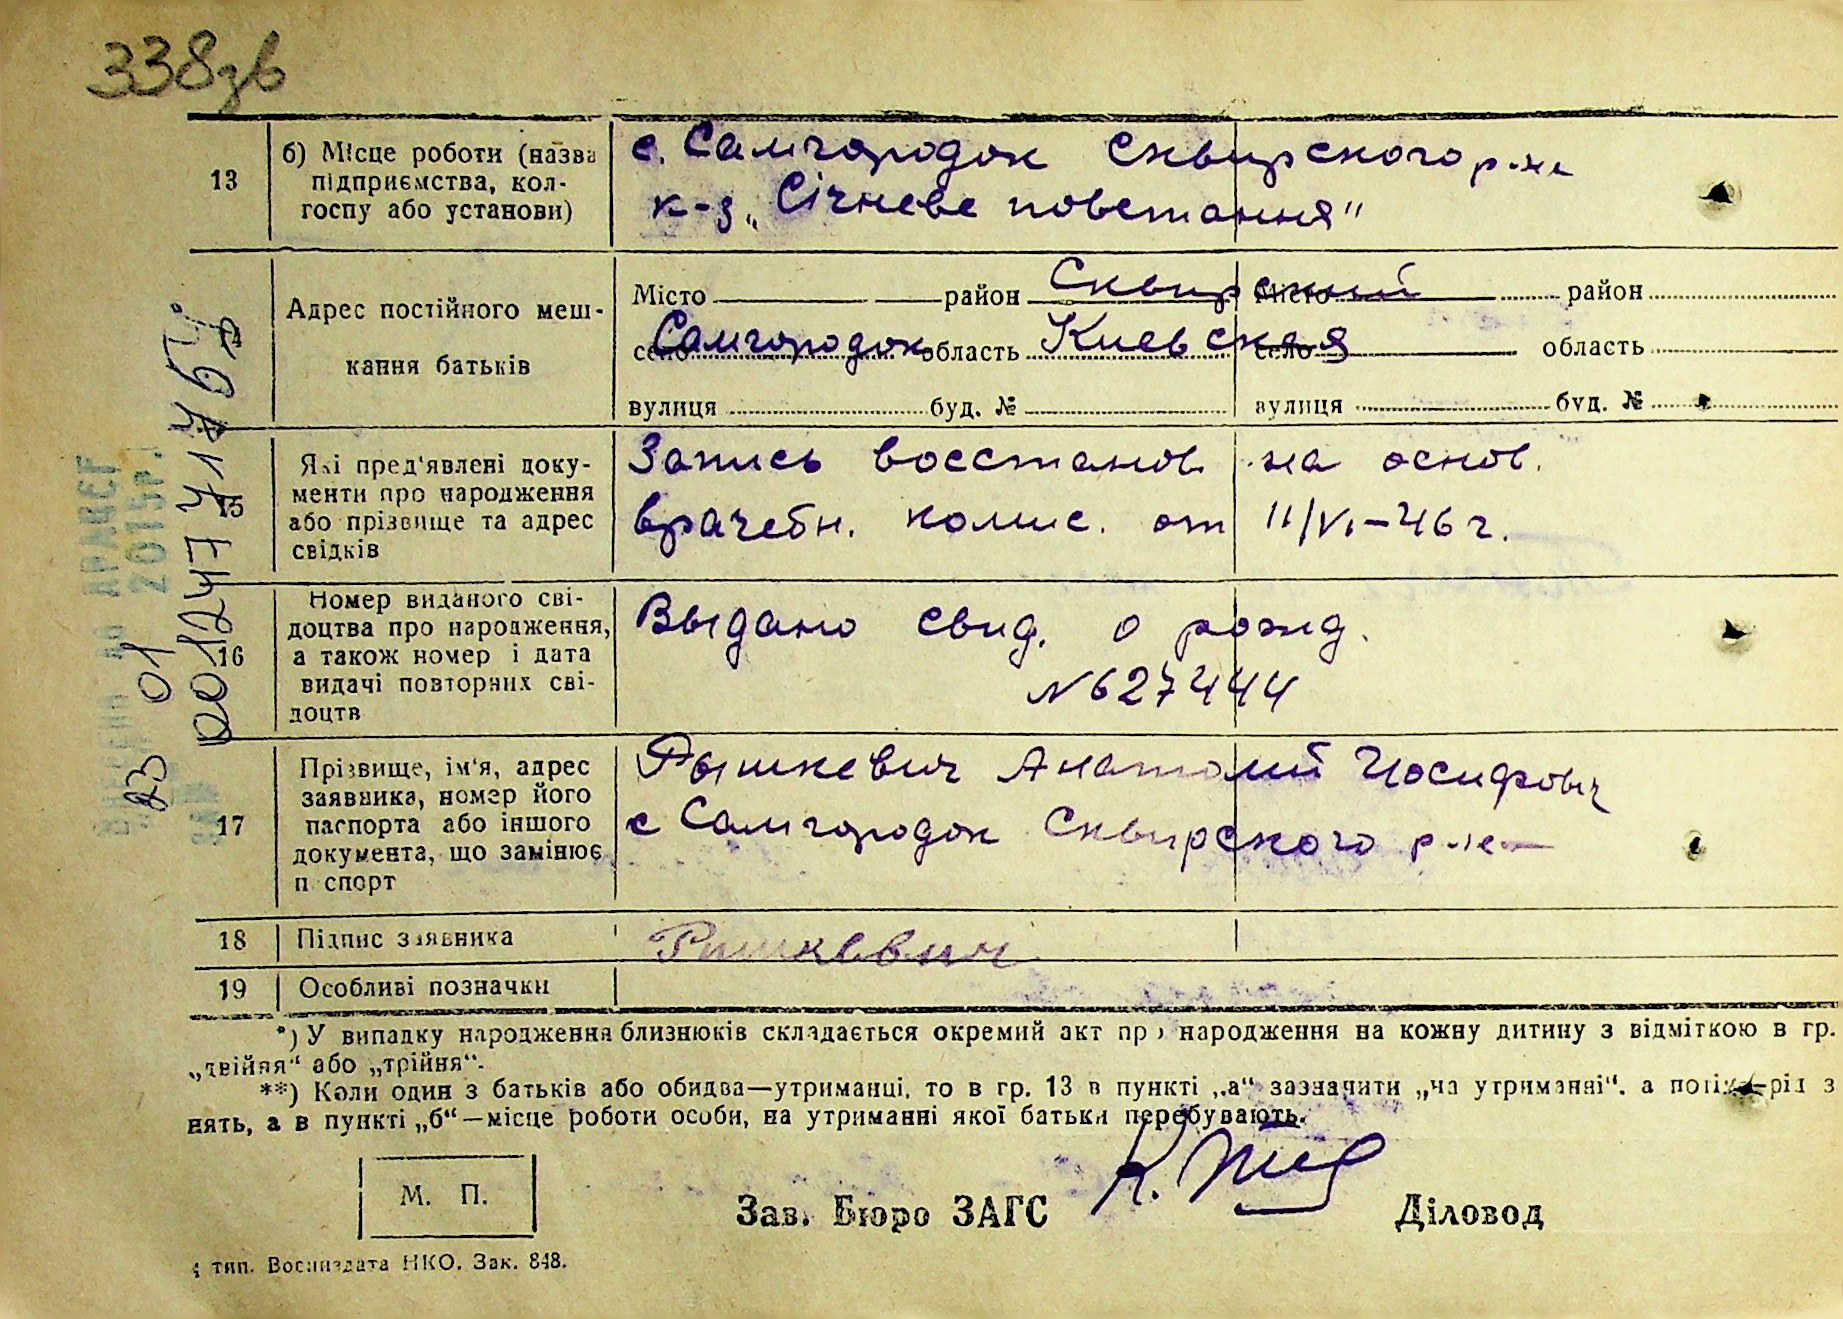 338зв
13
б) Місце роботи (назва
підприємства, кол-
госпу або установи)
с. Самгородок Сквирского р-на
к-з „Січневе повстання"
Адрес постійного меш-
кання батьків
Місто район Сквирский Місто район
село Самгородок область Киевская село область
вулиця буд. № вулиця буд. №
15
Які пред'явлені доку-
менти про народження
або прізвище та адрес
свідків
Запись восстанов. на основ.
врачебн. комис. от 11/VI-46 г.
16
Номер виданого сві-
доцтва про народження,
а також номер і дата
видачі повторних сві-
доцтв
Выдано свид. о рожд.
№ 627444
17
Прізвище, ім'я, адрес
заявника, номер його
паспорта або іншого
документа, що замінює
п спорт
Рышкевич Анатолий Иосифович
с Самгородок Сквирского р-на
18
Підпис заявника
Ришкевич
19
Особливі позначки
*) У випадку народження близнюків складається окремий акт про народження на кожну дитину з відміткою в гр.
„двійня" або „трійня".
**) Коли один з батьків або обидва—утриманці, то в гр. 13 в пункті „а" зазначити „на утриманні", а потім рід з
нять, а в пункті „б"—місце роботи особи, на утриманні якої батьки перебувають.
М. П.
Зав. Бюро ЗАГС
Діловод
тип. Воениздата НКО. Зак. 848.
23 01
2015р.